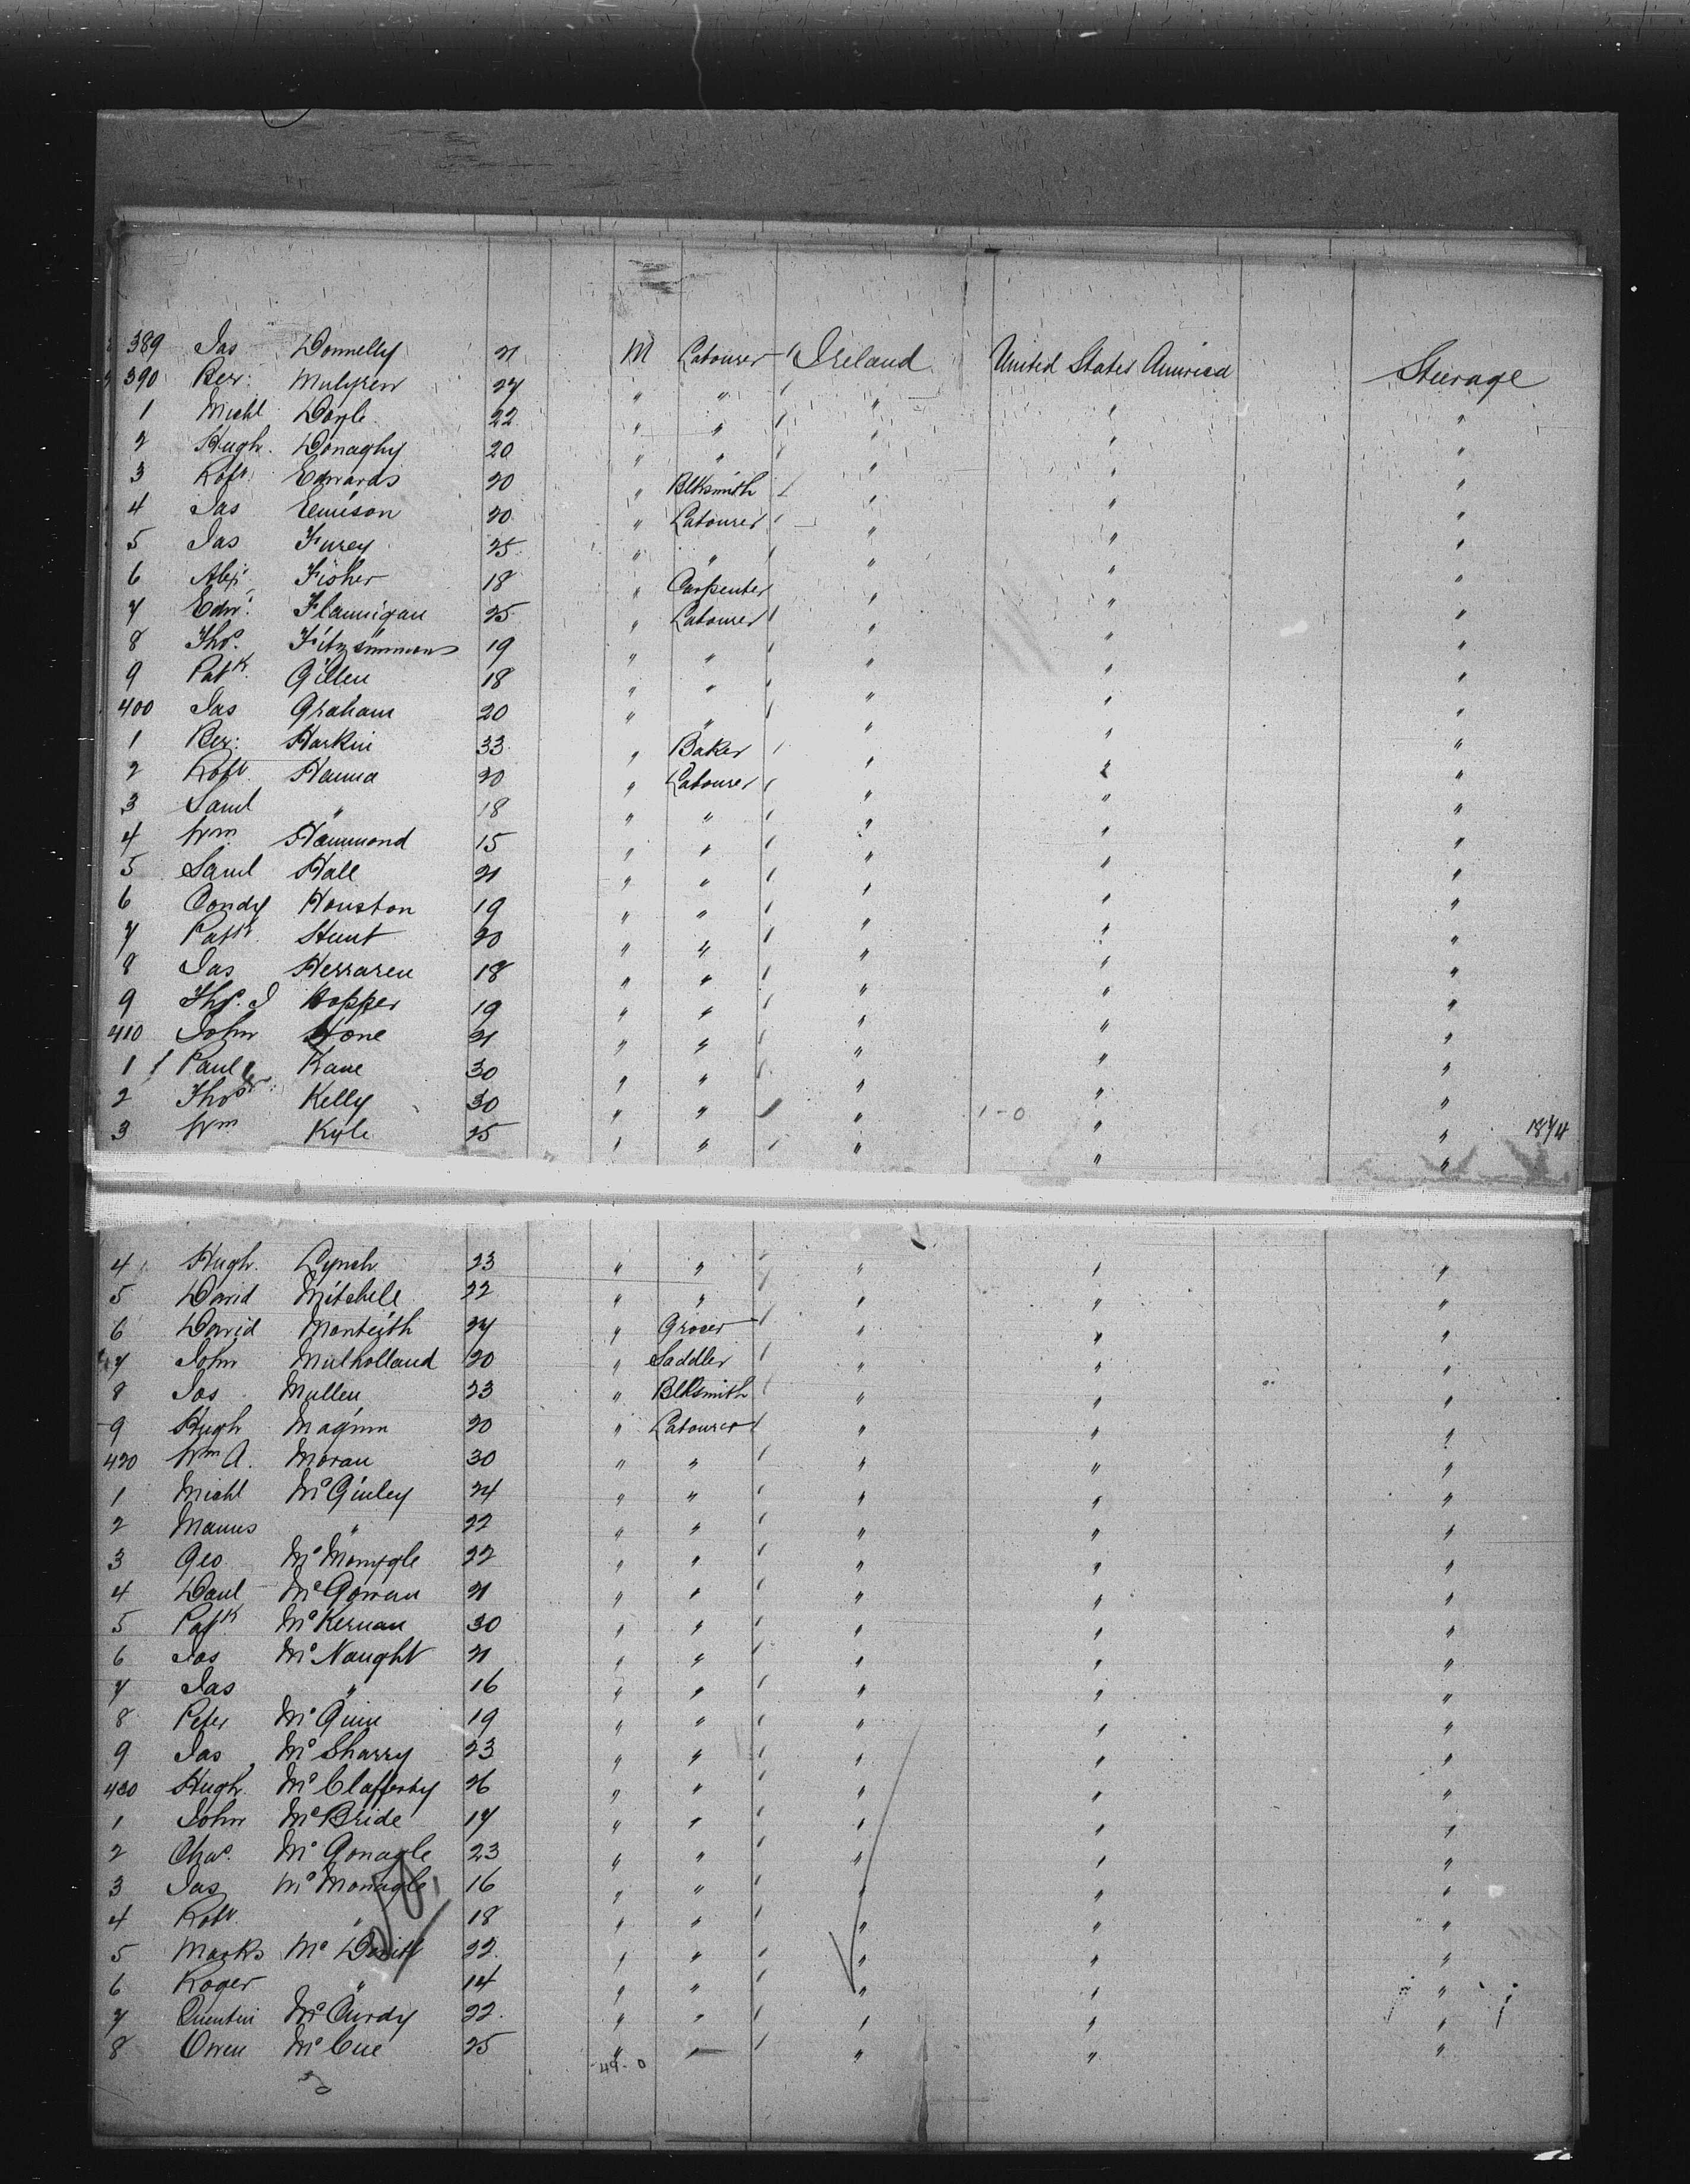 389 Jas Donnelly 21 M Labourer Ireland United States America Steerage
390 Ber: Mulgrew 27 " " " " "
1 Michl Doyle 22 " " " " "
2 Hugh Donaghy 20 " " " " "
3 Robt. Edwards 20 " Blksmith " " "
4 Jas 20 " Labourer " " "
5 Jas Furey 25 " " " " "
6 Alex. Fisher 18 " Carpenter " " "
7 Edwd. Flannigan 25 " Labourer " " "
8 Thos. Fitzsimmons 19 " " " " "
9 Patk. Gillen 18 " " " " "
400 Jas Graham 20 " " " " "
1 Ber: Harkin 33 " Baker " " "
2 Robt. Hanna 20 " Labourer " " "
3 Saml " 18 " " " " "
4 Wm Hammond 15 " " " " "
5 Saml Hall 21 " " " " "
6 Condy Houston 19 " " " " "
7 Patk. Hunt 20 " " " " "
8 Jas Herraren 18 " " " " "
9 Thos. J Hopper 19 " " " " "
410 John Hone 21 " " " " "
1 Paul Kane 30 " " " " "
2 Thos Kelly 30 " " " 1-0 " "
3 Wm Kyle 25 " " " " " 1874
4 Hugh Lynch 23 " " " " "
5 David Mitchell 22 " " " " "
6 David Monteith 27 " Grocer " " "
7 John Mulholland 20 " Saddler " " "
8 Jos Mullen 23 " Blksmith " " "
9 Hugh Maginn 20 " Labourer " " "
420 Wm A. Moran 30 " " " " "
1 Michl McGinley 24 " " " " "
2 Manus " 22 " " " " "
3 Geo McMonygle 22 " " " " "
4 Danl McGowan 21 " " " " "
5 Patk McKernan 30 " " " " "
6 Jos McNaught 21 " " " " "
7 Jas " 16 " " " " "
8 Peter McQuin 19 " " " " "
9 Jas McSharry 23 " " " " "
430 Hugh McClafferty 26 " " " " "
1 John McBride 17 " " " " "
2 Chas. McGonagle 23 " " " " "
3 Jas McMonagle 16 " " " " "
4 Robt. " 18 " " " " "
5 Marks McDevitt 22 " " " " "
6 Roger " 14 " " " " "
7 Quentin McCurdy 22 " " " " "
8 Owen McCue 25 " " " " "
49-0
50